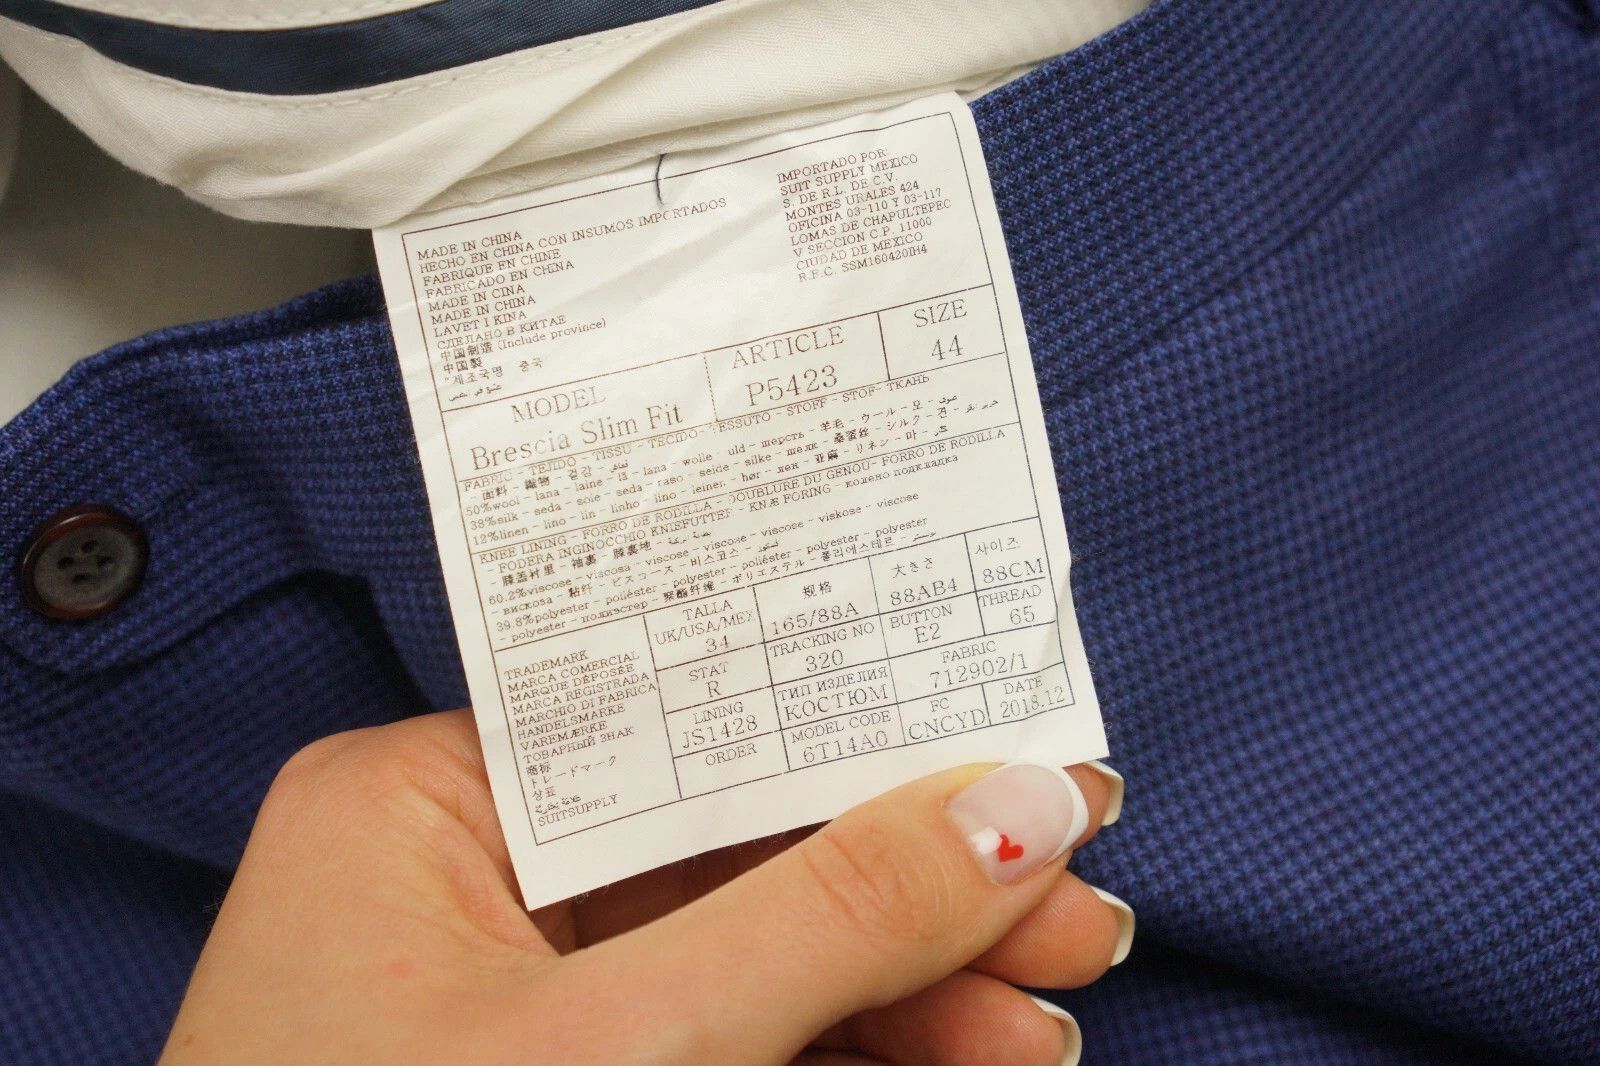 MADE IN CHINA
HECHO EN CHINA CON INSUMOS IMPORTADOS
FABRIQUE EN CHINE
FABRICADO EN CHINA
MADE IN CINA
MADE IN CHINA
LAVET I KINA
СДЕЛАНО В КИТАЕ
中国制造 (Include province)
中国製
제조국명 중국
IMPORTADO POR:
SUIT SUPPLY MEXICO
S. DE R.L. DE C.V.
MONTES URALES 424
OFICINA 03-110 Y 03-117
LOMAS DE CHAPULTEPEC
V SECCION C.P. 11000
CIUDAD DE MEXICO
R.F.C. SSM160420IH4
MODEL
Brescia Slim Fit
ARTICLE
P5423
SIZE
44
FABRIC - TEJIDO - TISSU - TECIDO - TESSUTO - STOFF - STOF - ТКАНЬ
- 面料 - 織物 - 겉감 -
50%wool - lana - laine - lã - lana - wolle - uld - шерсть - 羊毛 - ウール - 모 -
38%silk - seda - soie - seda - raso - seide - silke - шелк - 桑蚕丝 - シルク - 견 -
12%linen - lino - lin - linho - lino - leinen - hør - лен - 亚麻 - リネン - 마 -
KNEE LINING - FORRO DE RODILLA - DOUBLURE DU GENOU - FORRO DE RODILLA
- FODERA INGINOCCHIO KNIEFUTTEF - KNÆ FORING - колено подкладка
- 膝盖衬里 - 袖裏 - 膝裏地 -
60.2%viscose - viscosa - viscose - viscose - viscose - viskose - viscose
- вискоза - 粘纤 - ビスコース - 비스코스 -
39.8%polyester - poliéster - polyester - poliéster - polyester - polyester
- polyester - полиэстер - 聚酯纤维 - ポリエステル - 폴리에스테르 -
TRADEMARK
MARCA COMERCIAL
MARQUE DÉPOSÉE
MARCA REGISTRADA
MARCHIO DI FABRICA
HANDELSMARKE
VAREMÆRKE
ТОВАРНЫЙ ЗНАК
商标
トレードマーク
상표
SUITSUPPLY
TALLA
UK/USA/MEX
34
规格
165/88A
大きさ
88AB4
사이즈
88CM
STAT
R
TRACKING NO
320
BUTTON
E2
THREAD
65
LINING
JS1428
ТИП ИЗДЕЛИЯ
КОСТЮМ
FABRIC
712902/1
ORDER
MODEL CODE
6T14A0
FC
CNCYD
DATE
2018.12